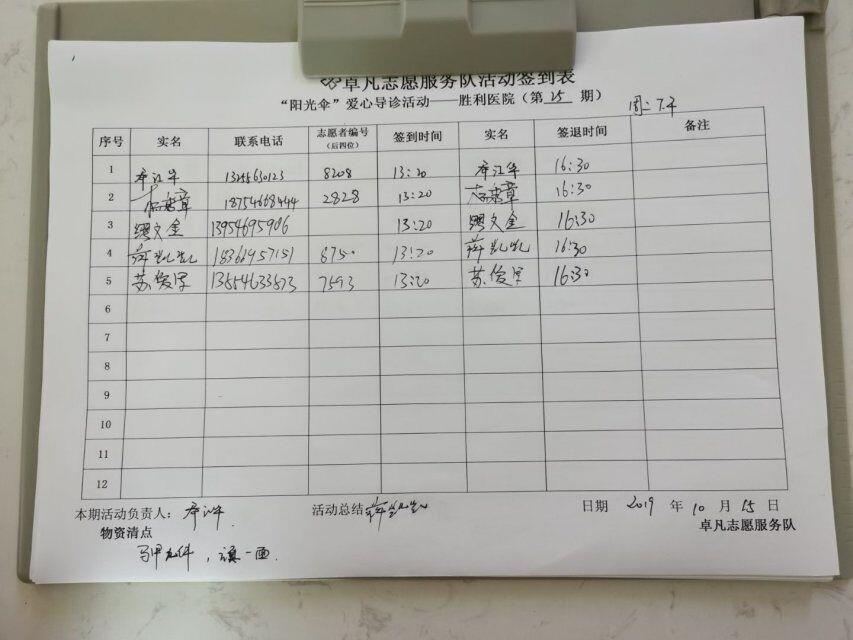 卓凡志愿服务队活动签到表
“阳光伞”爱心导诊活动——胜利医院（第 25 期）
周二下午
序号 实名 联系电话 志愿者编号（后四位） 签到时间 实名 签退时间 备注
1 李江华 13255630123 8208 13:20 李江华 16:30
2 18754668444 2828 13:20 16:30
3 缪文金 13954695906 13:20 缪文金 16:30
4 蒋凯凯 18361957151 8750 13:20 蒋凯凯 16:30
5 苏俊学 7593 13:20 苏俊学 16:30
6
7
8
9
10
11
12
本期活动负责人： 活动总结 蒋凯凯 日期 2019 年 10 月 15 日
物资清点 卓凡志愿服务队
马甲 件，旗一面.